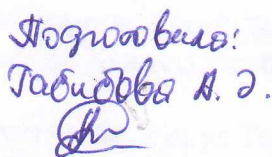 Подготовила:
Габибова А. Э.